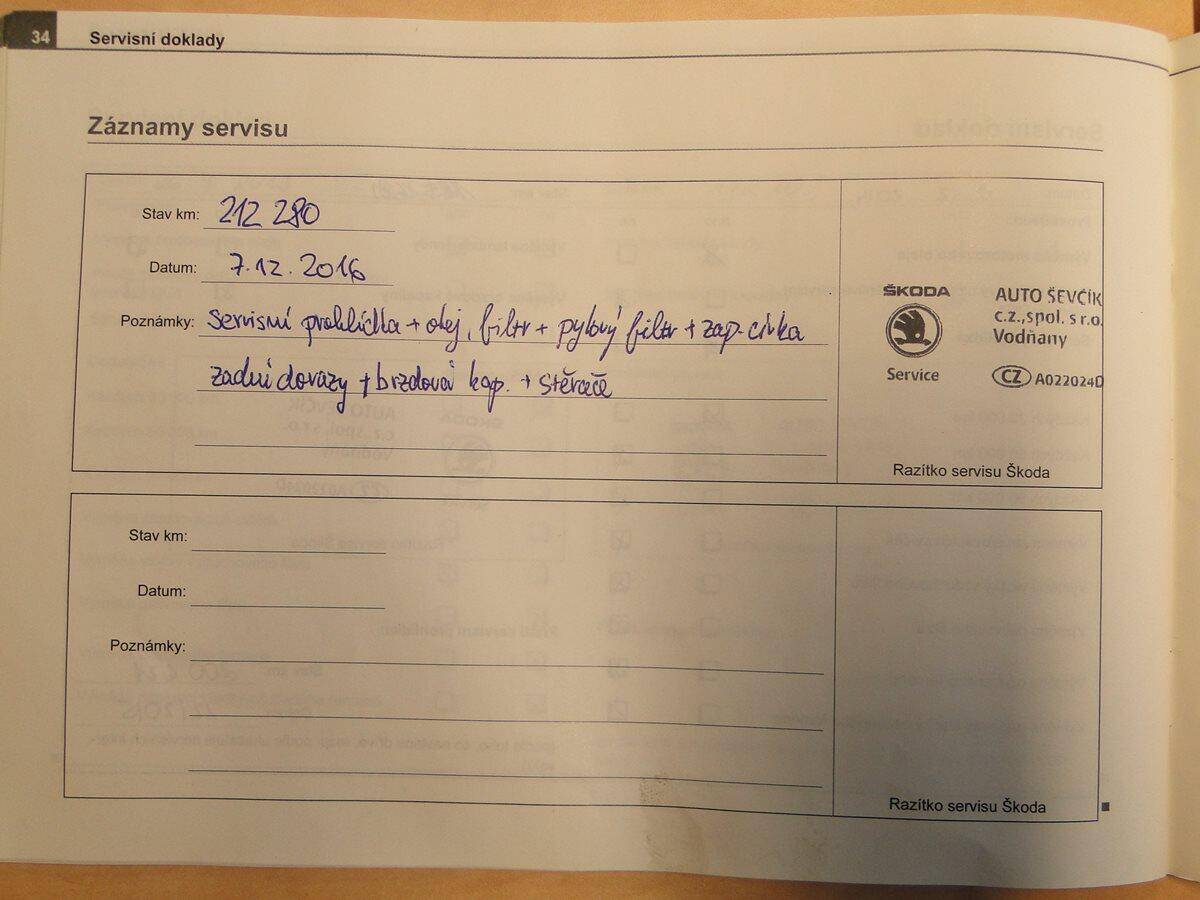 34 Servisní doklady
Záznamy servisu
Stav km: 212 280
Datum: 7.12.2016
Poznámky: servisní prohlídka + olej, filtr + pylový filtr + zap. cívka
zadní dorazy + brzdová kap. + stěrače
ŠKODA
Service
AUTO ŠEVČÍK
c.z.,spol. s r.o.
Vodňany
CZ A022024D
Razítko servisu Škoda
Stav km:
Datum:
Poznámky:
Razítko servisu Škoda